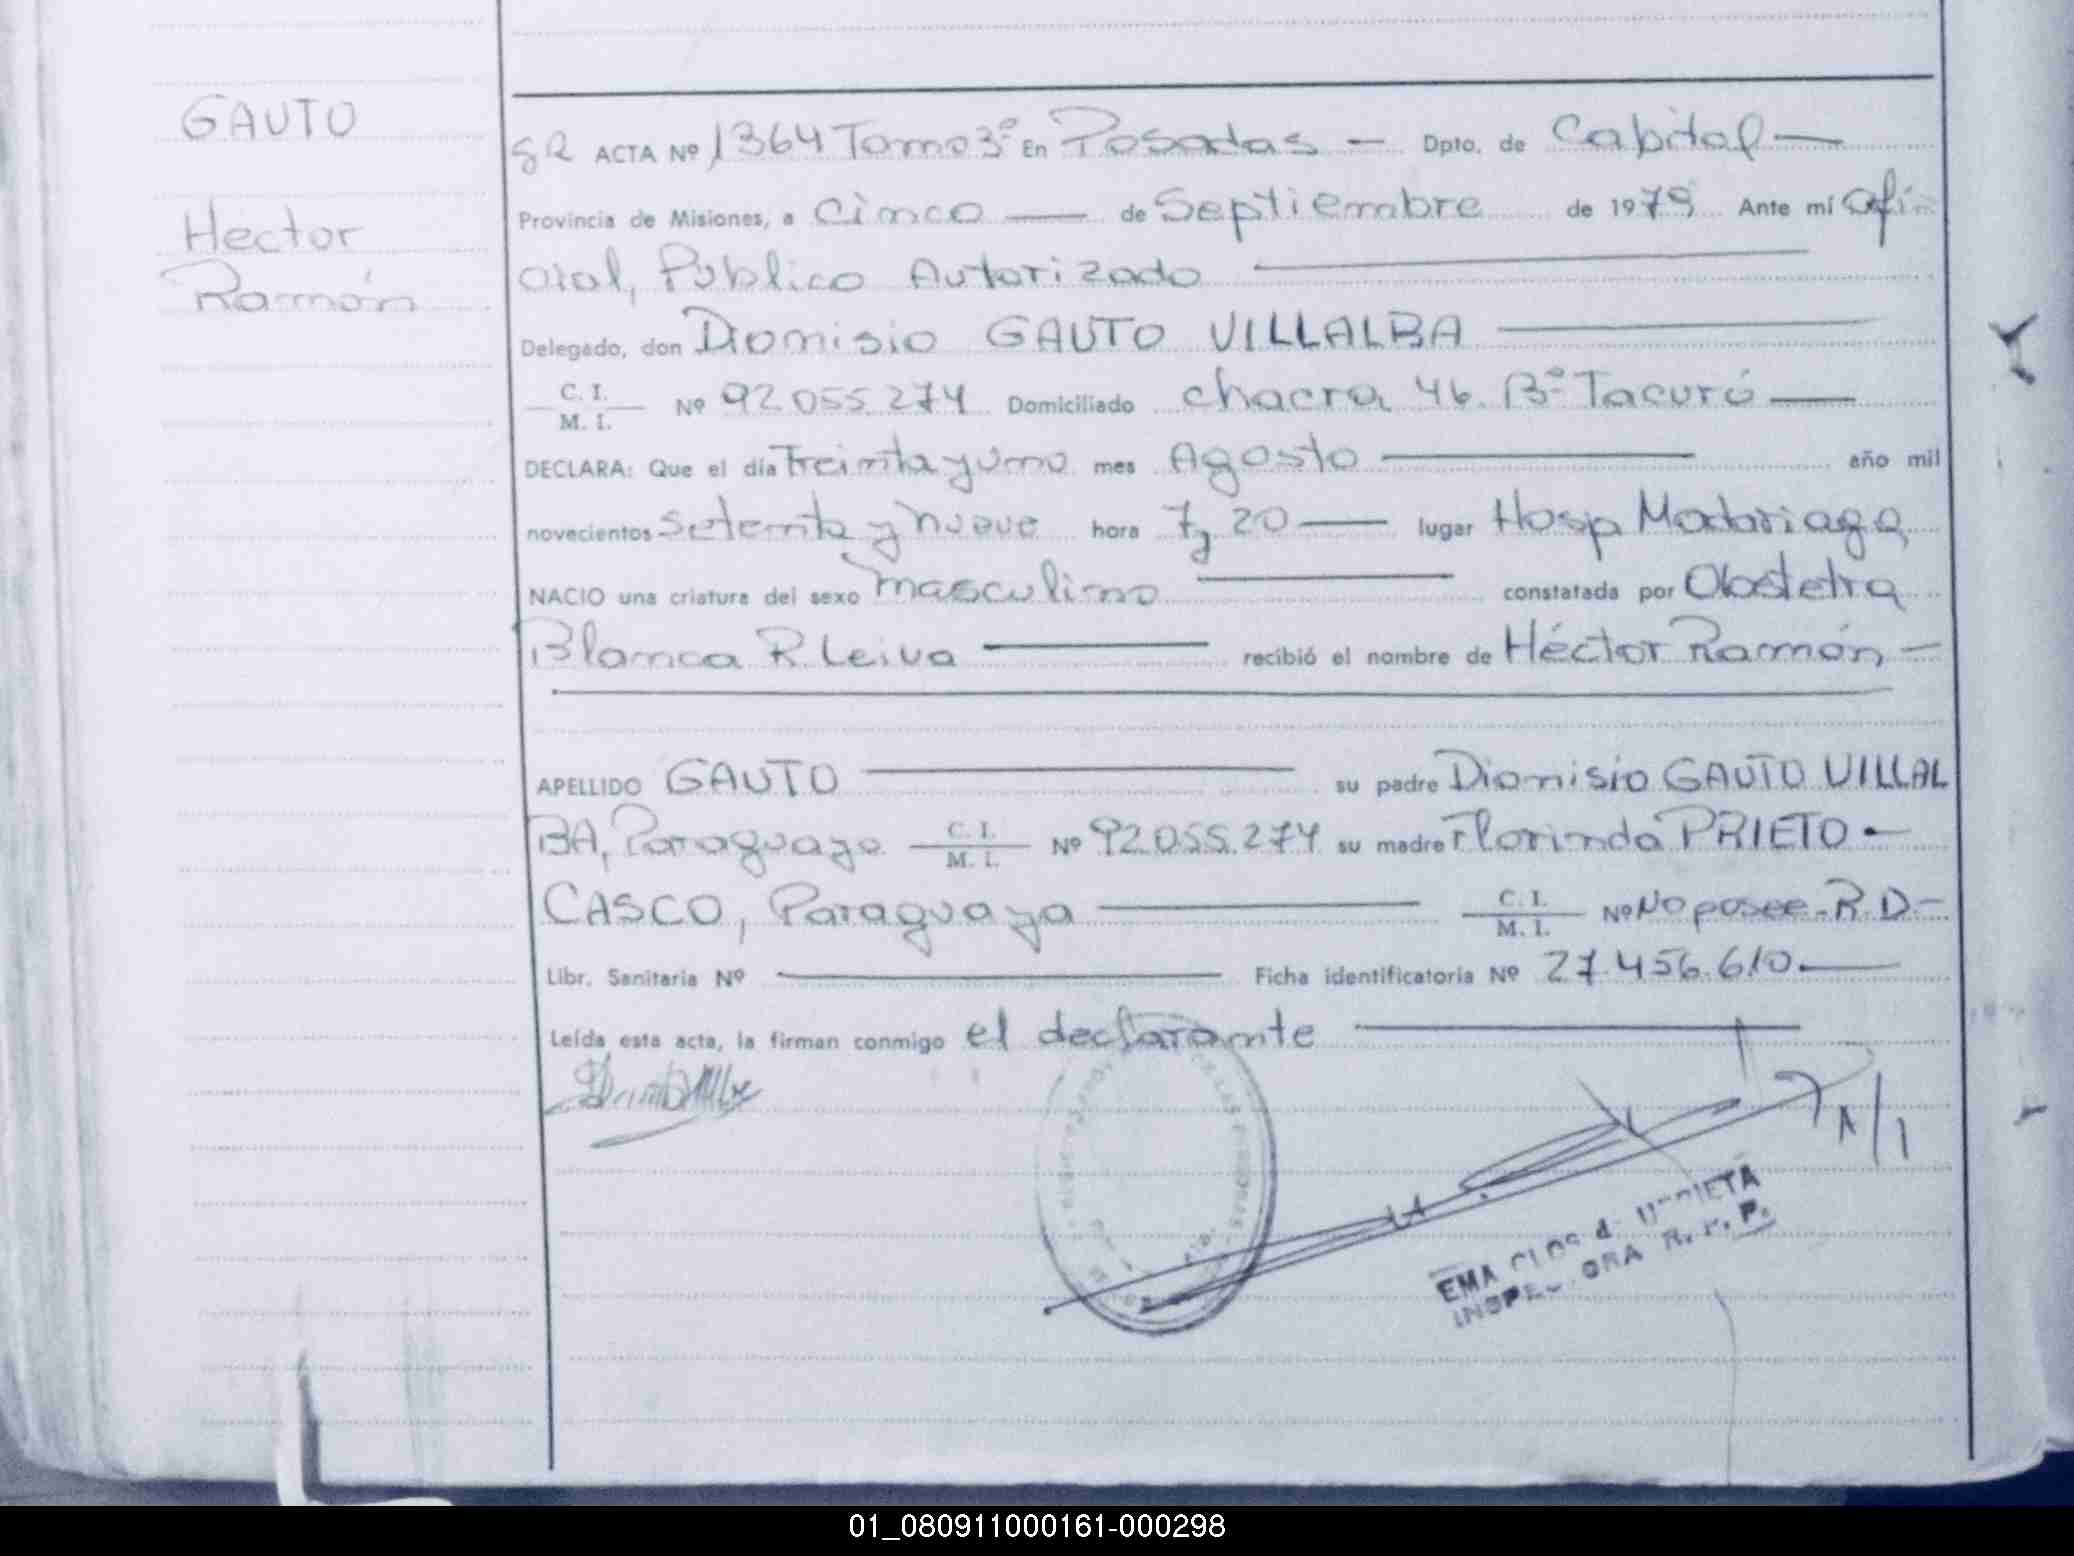 GAUTO
Hector
Ramón
SR ACTA Nº 1364 Tomo 3º En Posadas — Dpto. de Capital —
Provincia de Misiones, a Cinco — de Septiembre de 1979 Ante mí Ofi
cial, Público Autorizado —
Delegado, don Dionisio GAUTO VILLALBA —
C. I.
M. I. Nº 92.055.274 Domiciliado chacra 46. Bº Tacurú —
DECLARA: Que el día Treinta y uno mes Agosto — año mil
novecientos setenta y nueve hora 7 y 20 — lugar Hosp Madariaga
NACIO una criatura del sexo masculino — constatada por Obstetra
Blanca R. Leiva — recibió el nombre de Héctor Ramón —
APELLIDO GAUTO — su padre Dionisio GAUTO VILLAL
BA, Paraguayo C. I. M. I. Nº 92.055.274 su madre Florinda PRIETO —
CASCO, Paraguaya — C. I. M. I. Nº No posee. R. D. —
Libr. Sanitaria Nº — Ficha identificatoria Nº 27.456.610. —
Leída esta acta, la firman conmigo el declarante —
EMA
01_080911000161-000298